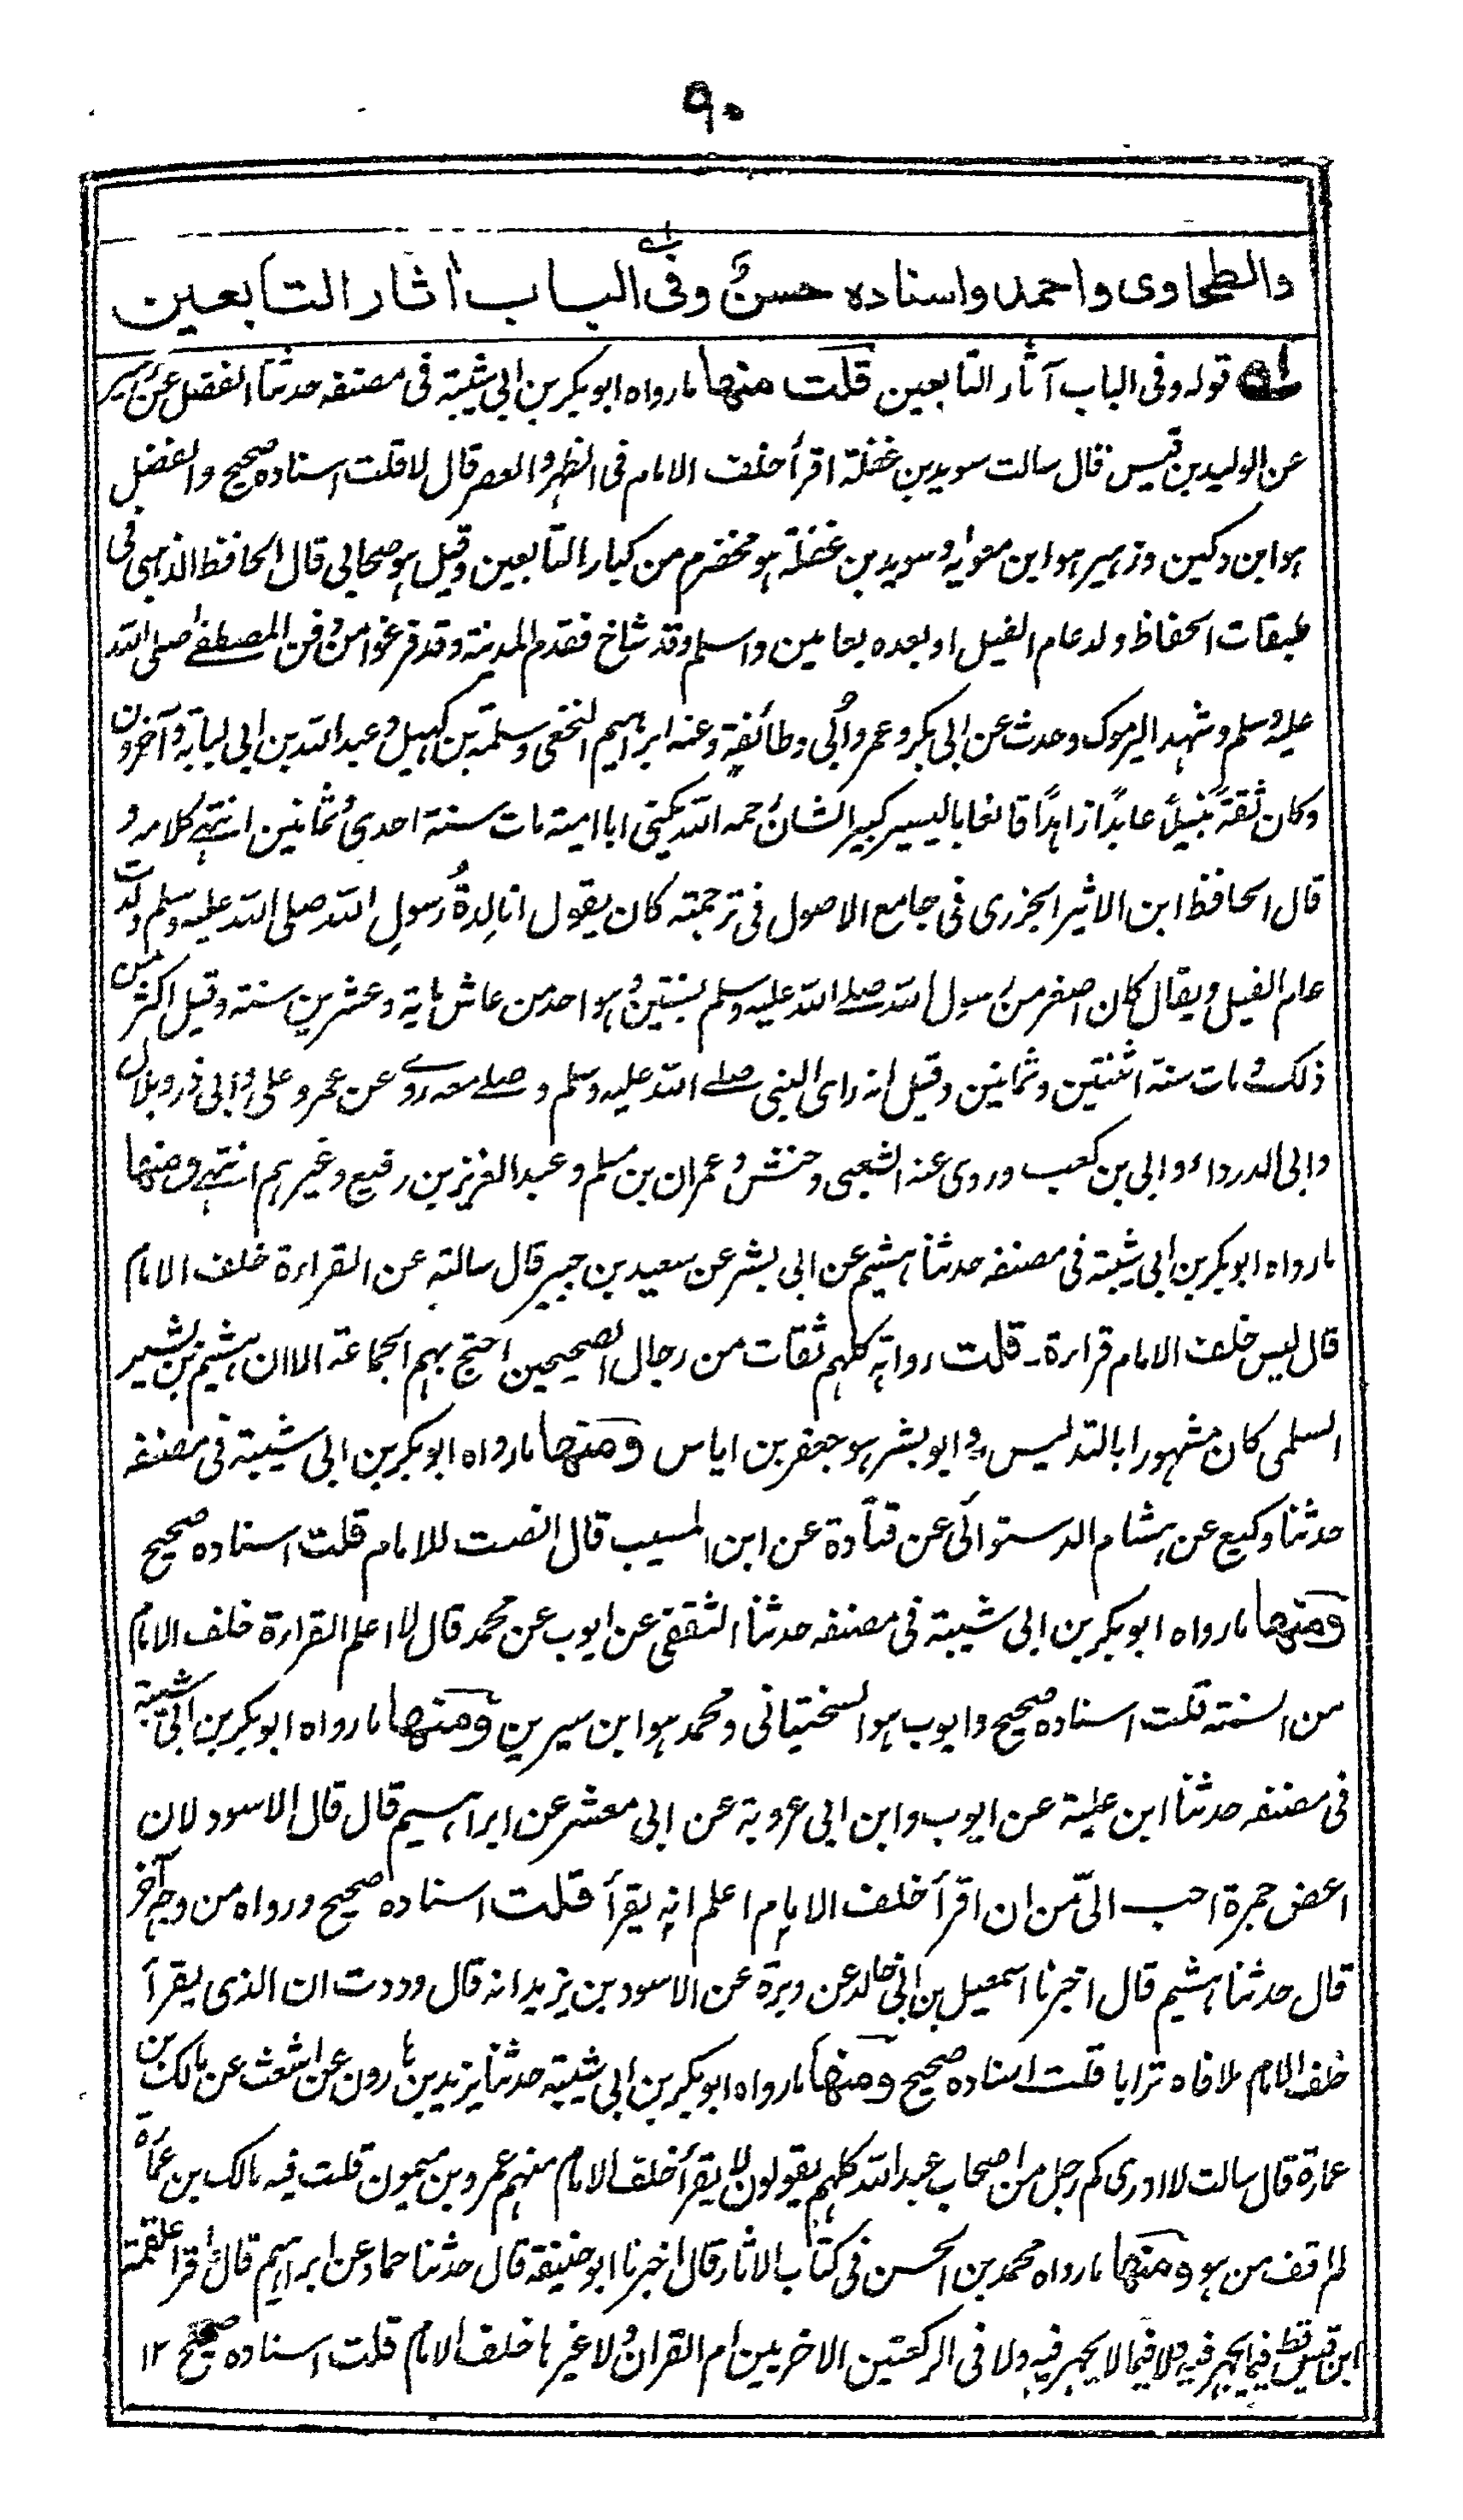 ٩٠
والطحاوى واحمد واسناده حسن وفى الباب اٰثار التابعين
قوله وفى الباب آثار التابعين قلت منها ما رواه ابو بكر بن ابى شيبة فى مصنفه حدثنا الفضل عن زهير
عن الوليد بن قيس قال سالت سويد بن غفلة اقرأ خلف الامام فى الظهر والعصر قال لا قلت اسناده صحيح والفضل
هو ابن دكين وزهير هو ابن معوية وسويد بن غفلة هو مخضرم من كبار التابعين وقيل هو صحابى قال الحافظ الذهبى فى
طبقات الحفاظ ولد عام الفيل او بعده بعامين واسلم وقد شاخ فقدم المدينة وقد فرغوا من دفن المصطفٰے صلى الله
عليه وسلم وشهد اليرموك وحدث عن ابى بكر وعمر واُبى وطائفة وعنه ابراهيم النخعى وسلمة بن كهيل وعبد الله بن ابى لبابة وآخرون
وكان ثقة نبيلاً عابداً زاهداً قانعا باليسير كبير الشان رحمه الله يكنى ابا امية مات سنة احدى وثمانين انتهے كلامه و
قال الحافظ ابن الاثير الجزرى فى جامع الاصول فى ترجمته كان يقول انا لِدةُ رسولِ الله صلى الله عليه وسلم ولدت
عام الفيل ويقال كان اصغر من رسول الله صلے الله عليه وسلم بسنتين وهو احد من عاش ماية وعشرين سنة وقيل اكثر من
ذلك ومات سنة اثنتين وثمانين وقيل انه راى النبى صلے الله عليه وسلم وصلے معه روے عن عمر وعلى وابى ذر وبلال
وابى الدرداء وابى بن كعب وروى عنه الشعبى وحنش وعمران بن مسلم وعبد العزيز بن رفيع وغيرهم انتهے ومنها
ما رواه ابو بكر بن ابى شيبة فى مصنفه حدثنا هشيم عن ابى بشر عن سعيد بن جبير قال سالته عن القراءة خلف الامام
قال ليس خلف الامام قراءة ـ قلت رواته كلهم ثقات من رجال الصحيحين احتج بهم الجماعة الا ان هشيم بن بشير
السلمى كان مشهورا بالتدليس وابو بشر هو جعفر بن اياس ومنها ما رواه ابو بكر بن ابى شيبة فى مصنفه
حدثنا وكيع عن هشام الدستوائى عن قتادة عن ابن المسيب قال انصت للامام قلت اسناده صحيح
ومنها ما رواه ابو بكر بن ابى شيبة فى مصنفه حدثنا الثقفى عن ايوب عن محمد قال لا اعلم القراءة خلف الامام
من السنة قلت اسناده صحيح وايوب هو السختيانى ومحمد هو ابن سيرين ومنها ما رواه ابو بكر بن ابى شيبة
فى مصنفه حدثنا ابن علية عن ايوب وابن ابى عروبة عن ابى معشر عن ابراهيم قال قال الاسود لان
اعض جمرة احب الىّ من ان اقرأ خلف الامام اعلم انه يقرأ قلت اسناده صحيح ورواه من وجه آخر
قال حدثنا هشيم قال اخبرنا اسمعيل بن ابى خالد عن وبرة عن الاسود بن يزيد انه قال وددت ان الذى يقرأ
خلف الامام ملا فاه ترابا قلت اسناده صحيح ومنها ما رواه ابو بكر بن ابى شيبة حدثنا يزيد بن هارون عن اشعث عن مالك بن
عمارة قال سالت لا ادرى كم رجل من اصحاب عبد الله كلهم يقولون لا يقرأ خلف الامام منهم عمرو بن ميمون قلت فيه مالك بن عمارة
لم اقف من هو ومنها ما رواه محمد بن الحسن فى كتاب الاثار قال اخبرنا ابو حنيفة قال حدثنا حماد عن ابراهيم قال ما قرأ علقمة
ابن قيس قط فيما يجهر فيه ولا فيما لا يجهر فيه ولا فى الركعتين الاخريين ام القران ولا غيرها خلف الامام قلت اسناده صحيح ١٢